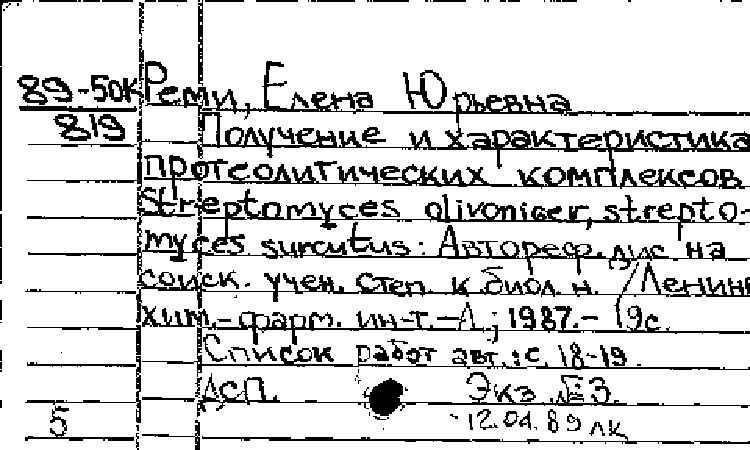 89-50К Реми, Елена Юрьевна
819 Получение и характеристика
протеолитических комплексов
Streptomyces olivoniger, strepto-
myces surcutus: Автореф. дис на
соиск. учен. степ. к. биол. н. / Ленинг
хим.-фарм. ин-т.-Л.; 1987.- 19с.
Список работ авт.: с. 18-19.
ДСП. Экз. №3.
5 12.04.89 лк